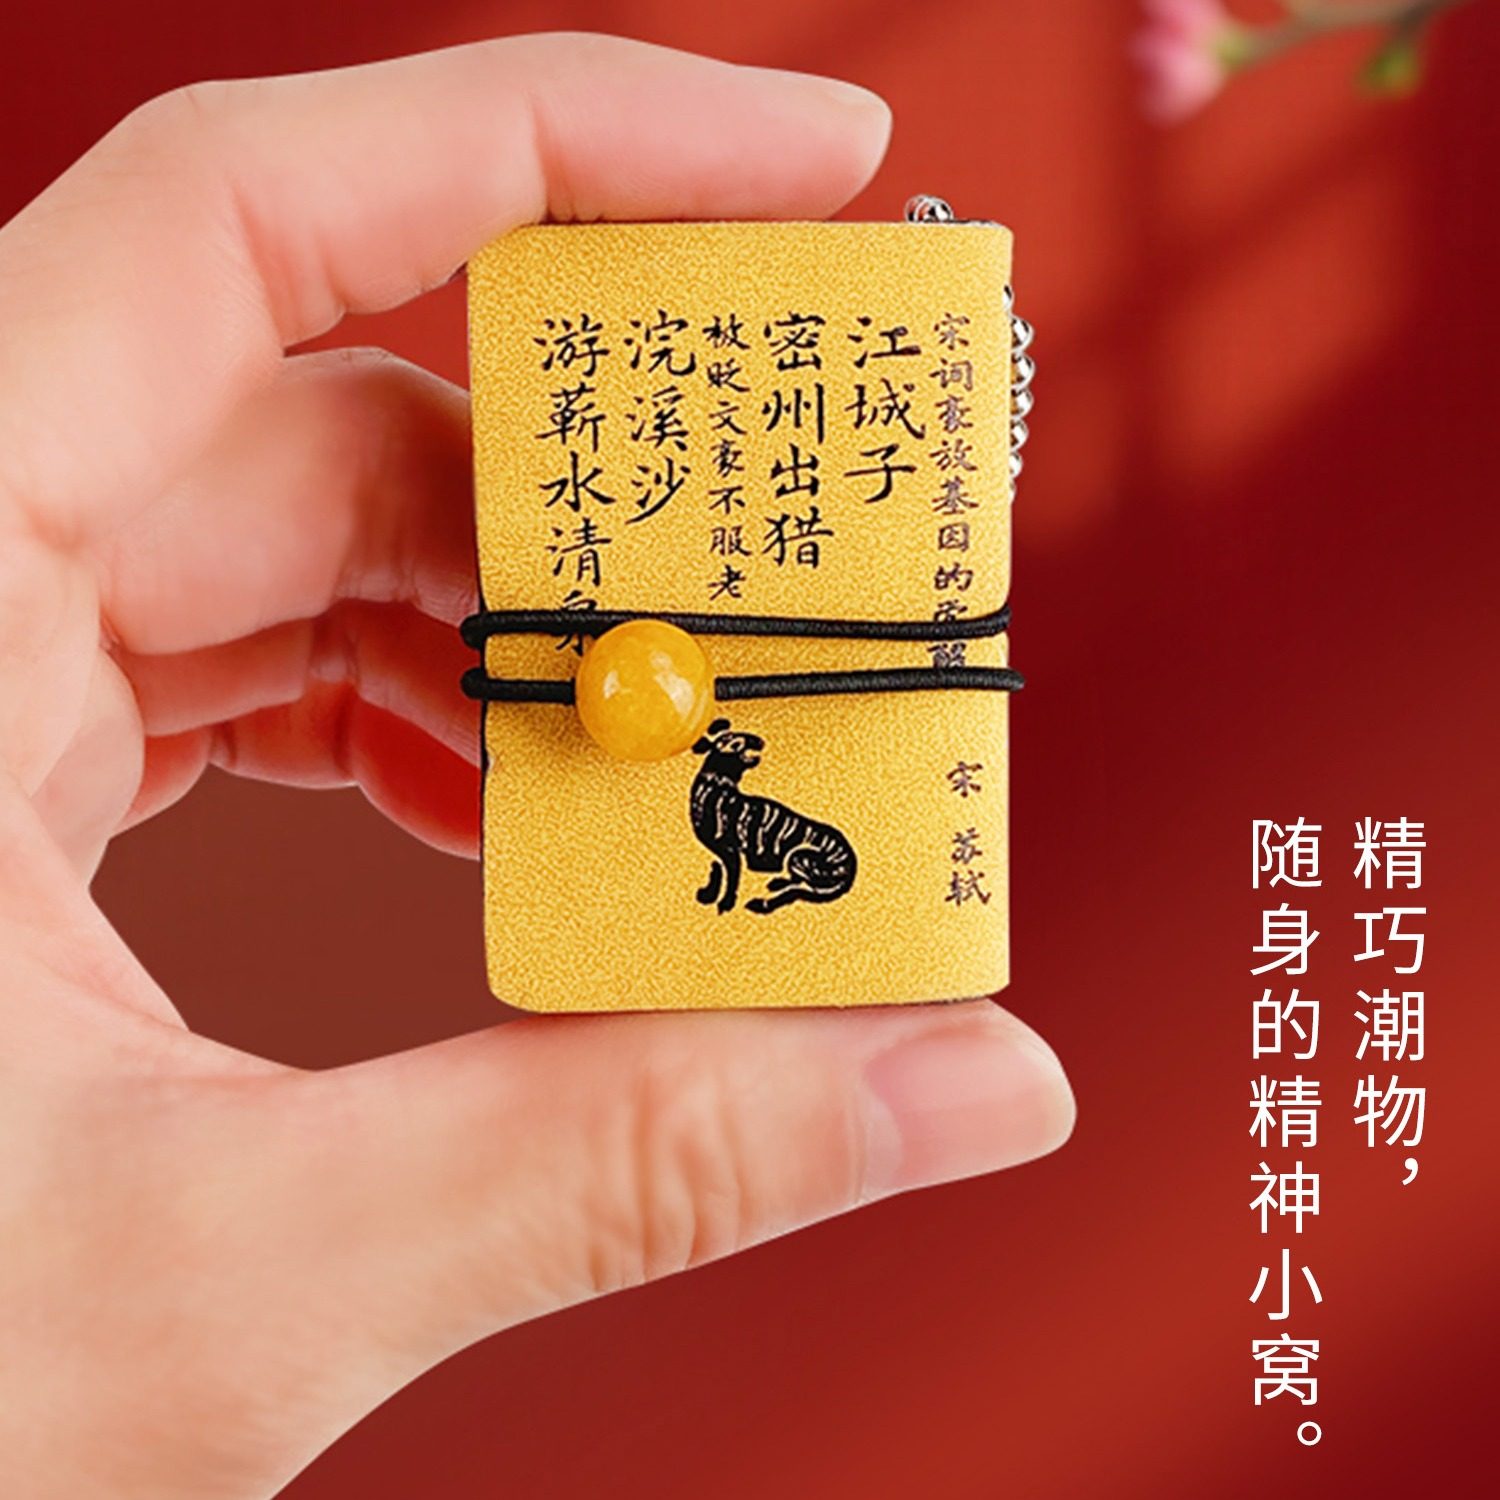 宋词豪放基因的觉醒
江城子
密州出猎
被贬文豪不服老
浣溪沙
游蕲水清泉
宋 苏轼
精巧潮物，
随身的精神小窝。